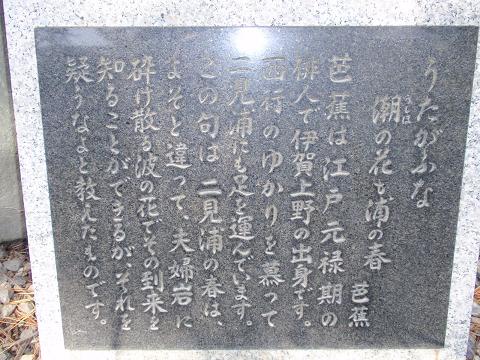 うたがふな
潮の花も浦の春 芭蕉
芭蕉は江戸元禄期の
俳人で伊賀上野の出身です。
西行のゆかりを慕って
二見浦にも足を運んでいます。
この句は、二見浦の春は、
よそと違って、夫婦岩に
砕け散る波の花でその到来を
知ることができるが、それを
疑うなよと教えたものです。